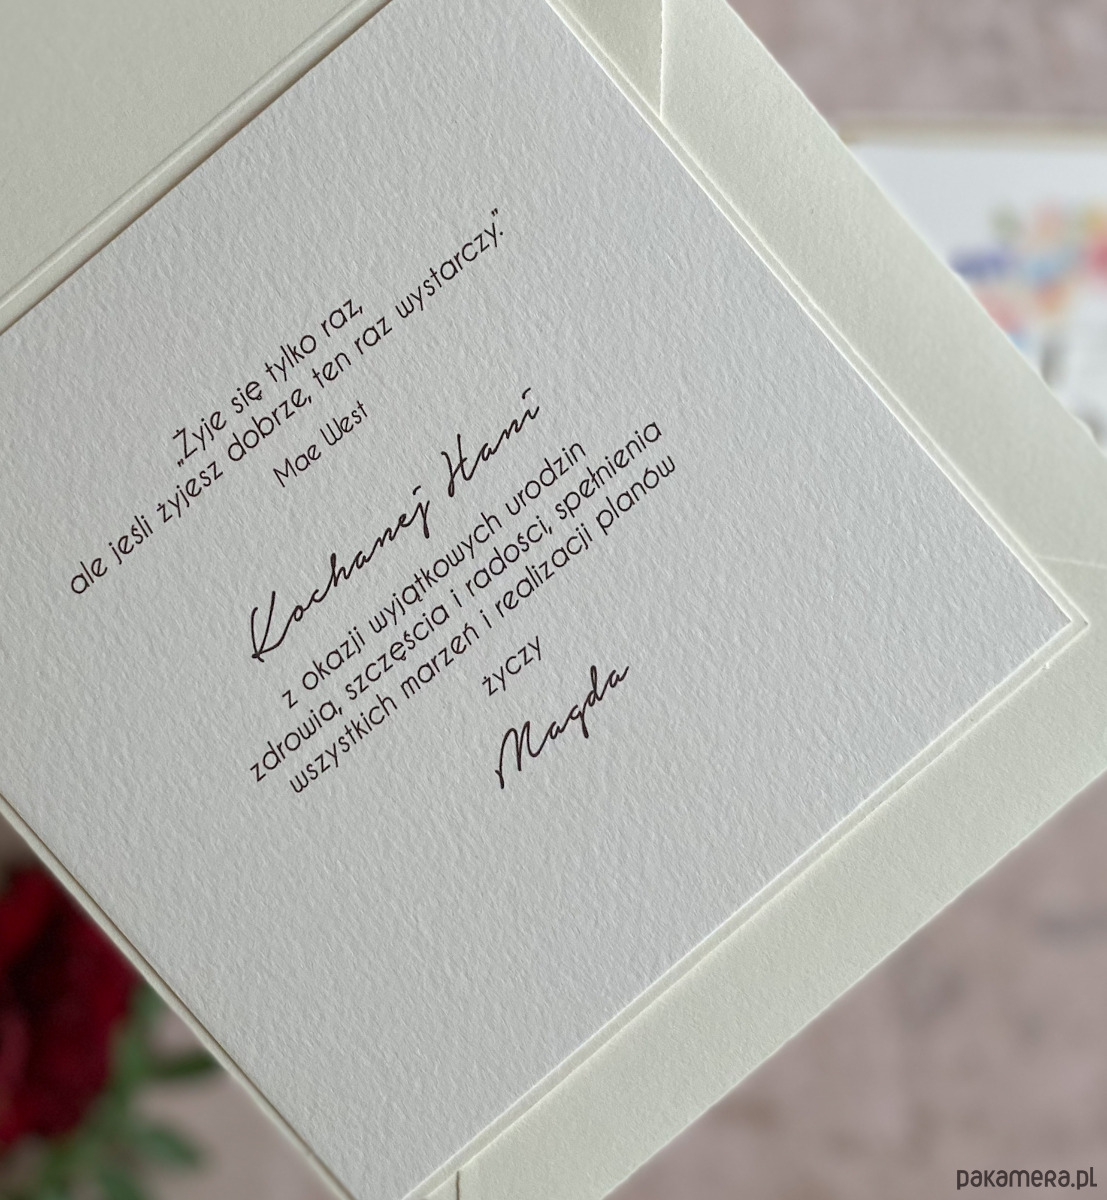 „Żyje się tylko raz,
ale jeśli żyjesz dobrze, ten raz wystarczy."
Mae West
Kochanej Hani
z okazji wyjątkowych urodzin
zdrowia, szczęścia i radości, spełnienia
wszystkich marzeń i realizacji planów
życzy
Magda
pakamera.pl